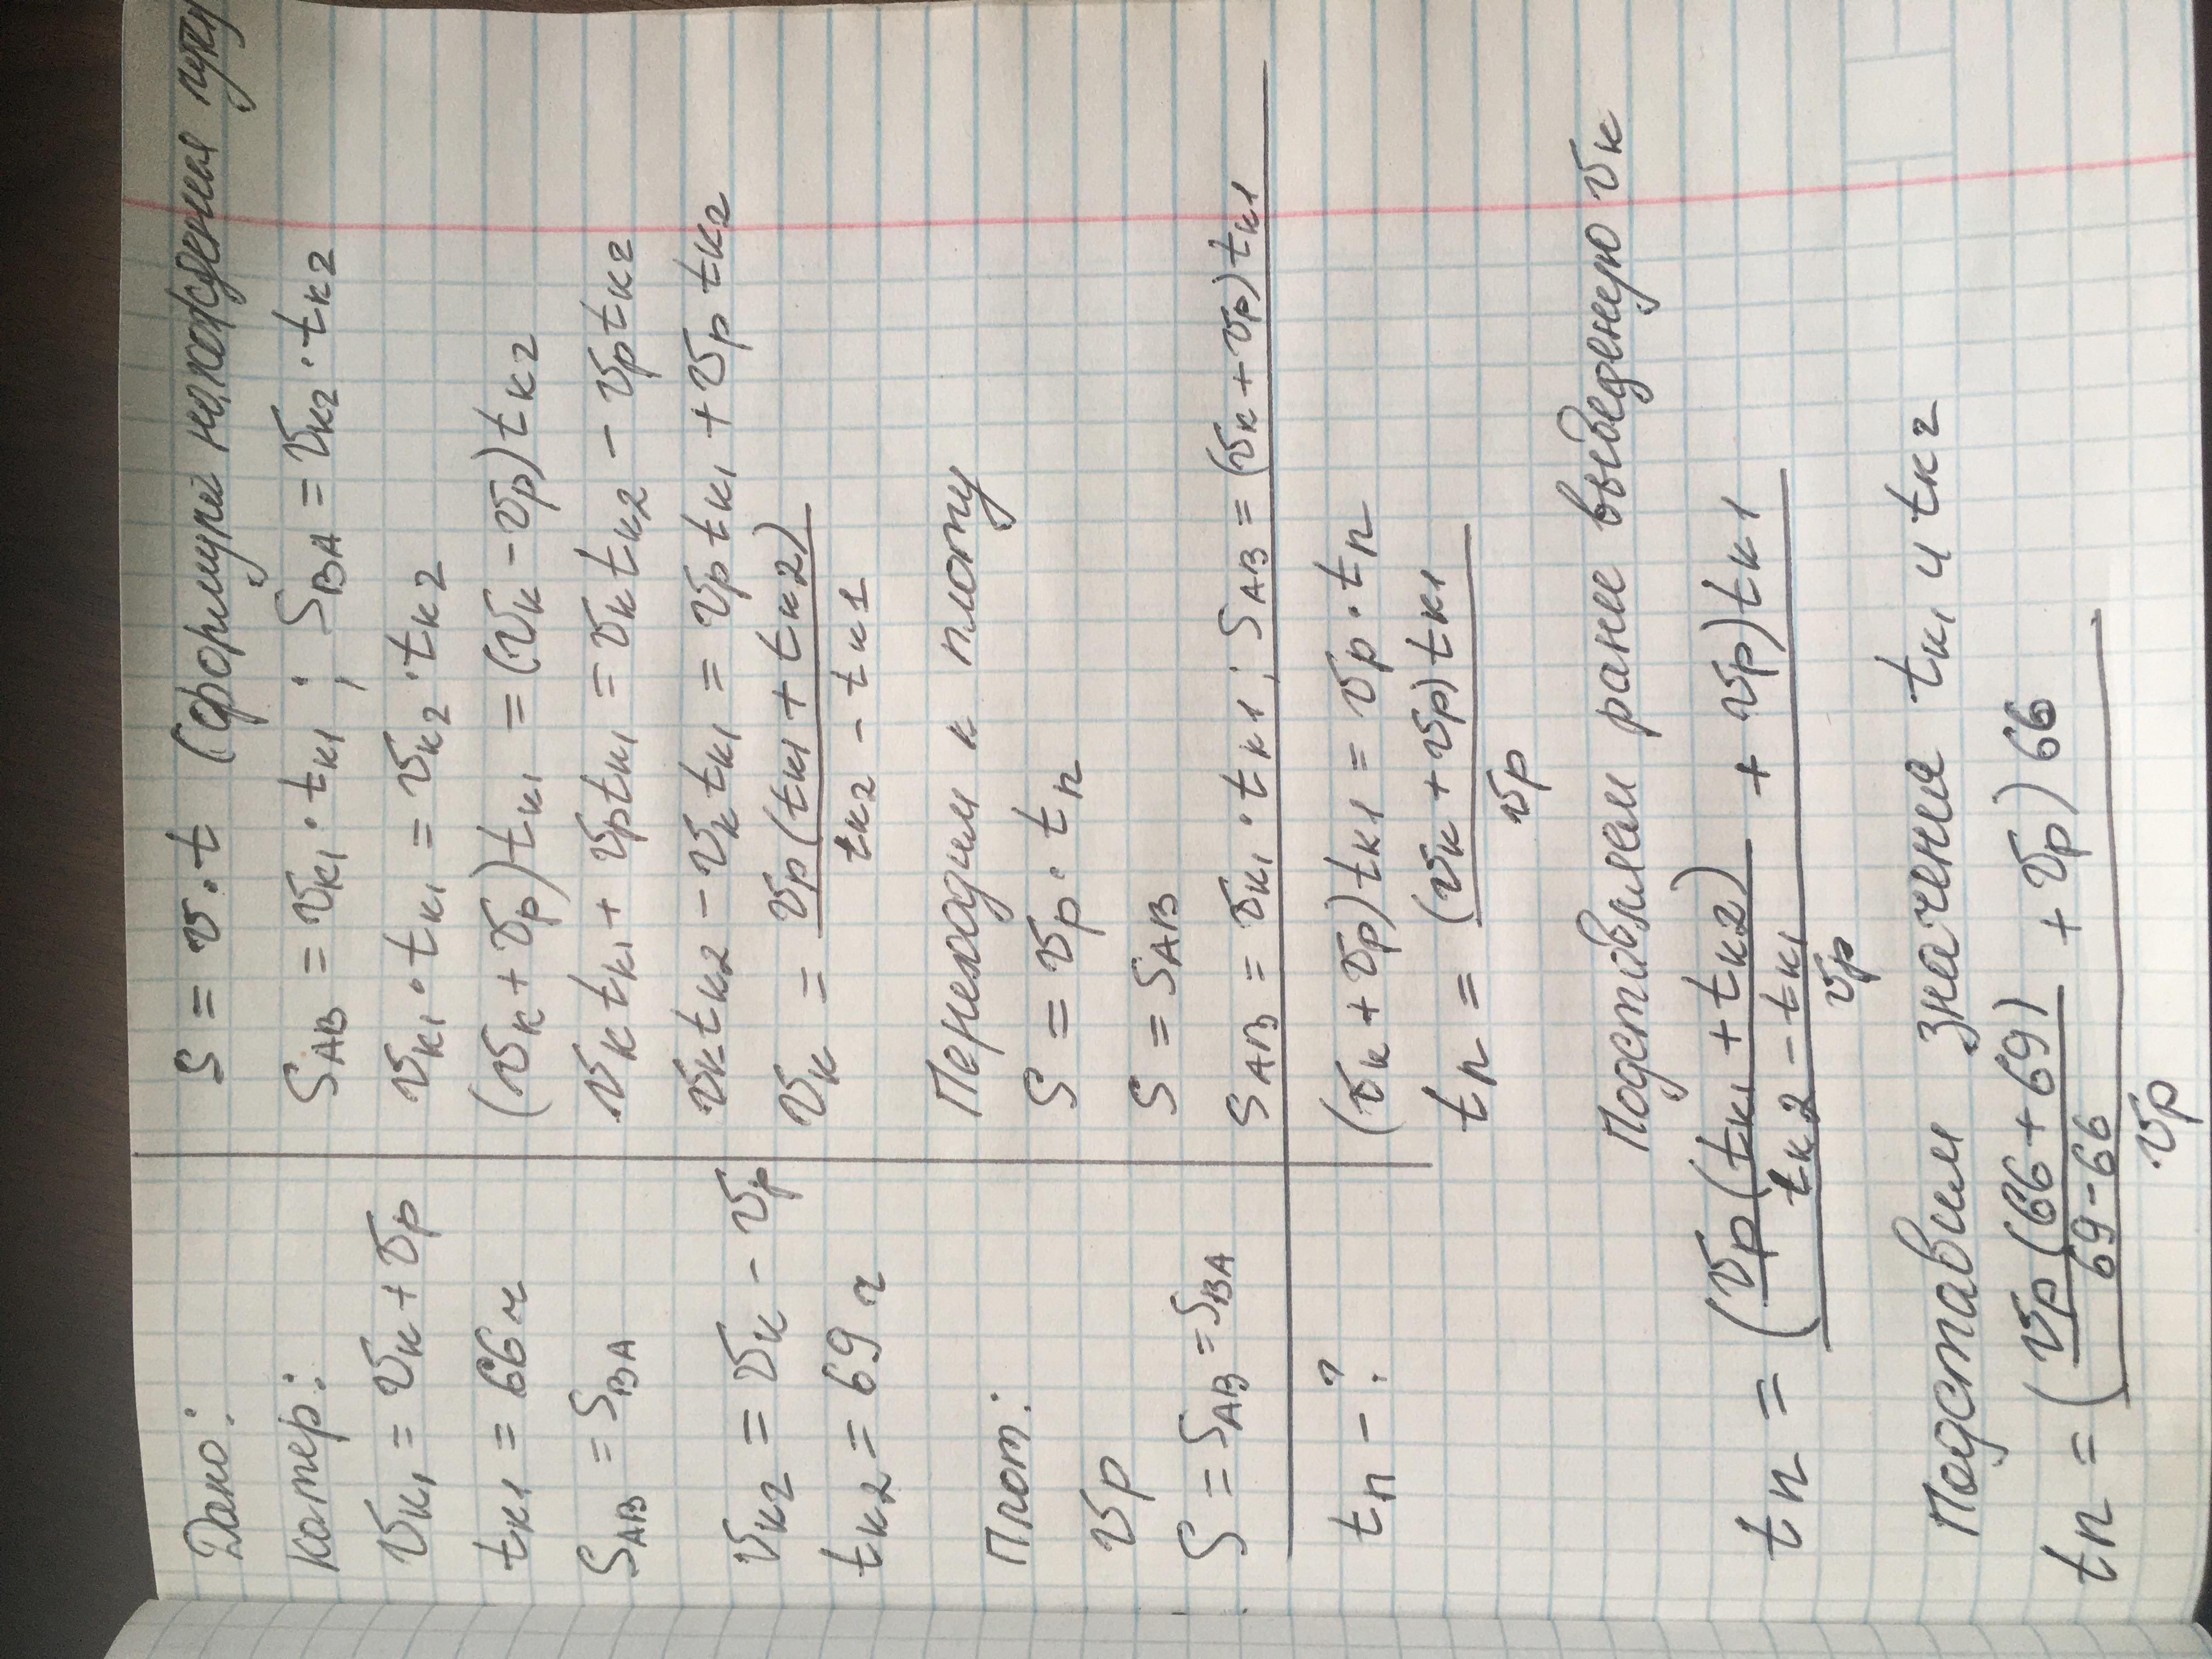 Дано:
Катер:
υк1 = υк + υр
tк1 = 66ч
SAB = SBA
υк2 = υк - υр
tк2 = 69 ч
Плот:
υр
S = SAB = SBA
tп - ?
S = υ·t (формула нахождения пути
SAB = υк1·tк1 ; SBA = υк2·tк2
υк1·tк1 = υк2·tк2
(υк + υр)tк1 = (υк - υр)tк2
υк tк1 + υр tк1 = υк tк2 - υр tк2
υк tк2 - υк tк1 = υр tк1 + υр tк2
υк = υр(tк1 + tк2) / tк2 - tк1
Переходим к плоту
S = υр·tп
S = SAB
SAB = υк1·tк1 ; SAB = (υк + υр)tк1
(υк + υр)tк1 = υр·tп
tп = (υк + υр)tк1 / υр
Подставляем ранее выведеную υк
tп = (υр(tк1 + tк2) / tк2 - tк1 + υр)tк1 / υр
Подставим значение tк1 и tк2
tп = (υр(66 + 69) / 69 - 66 + υр)66 / υр